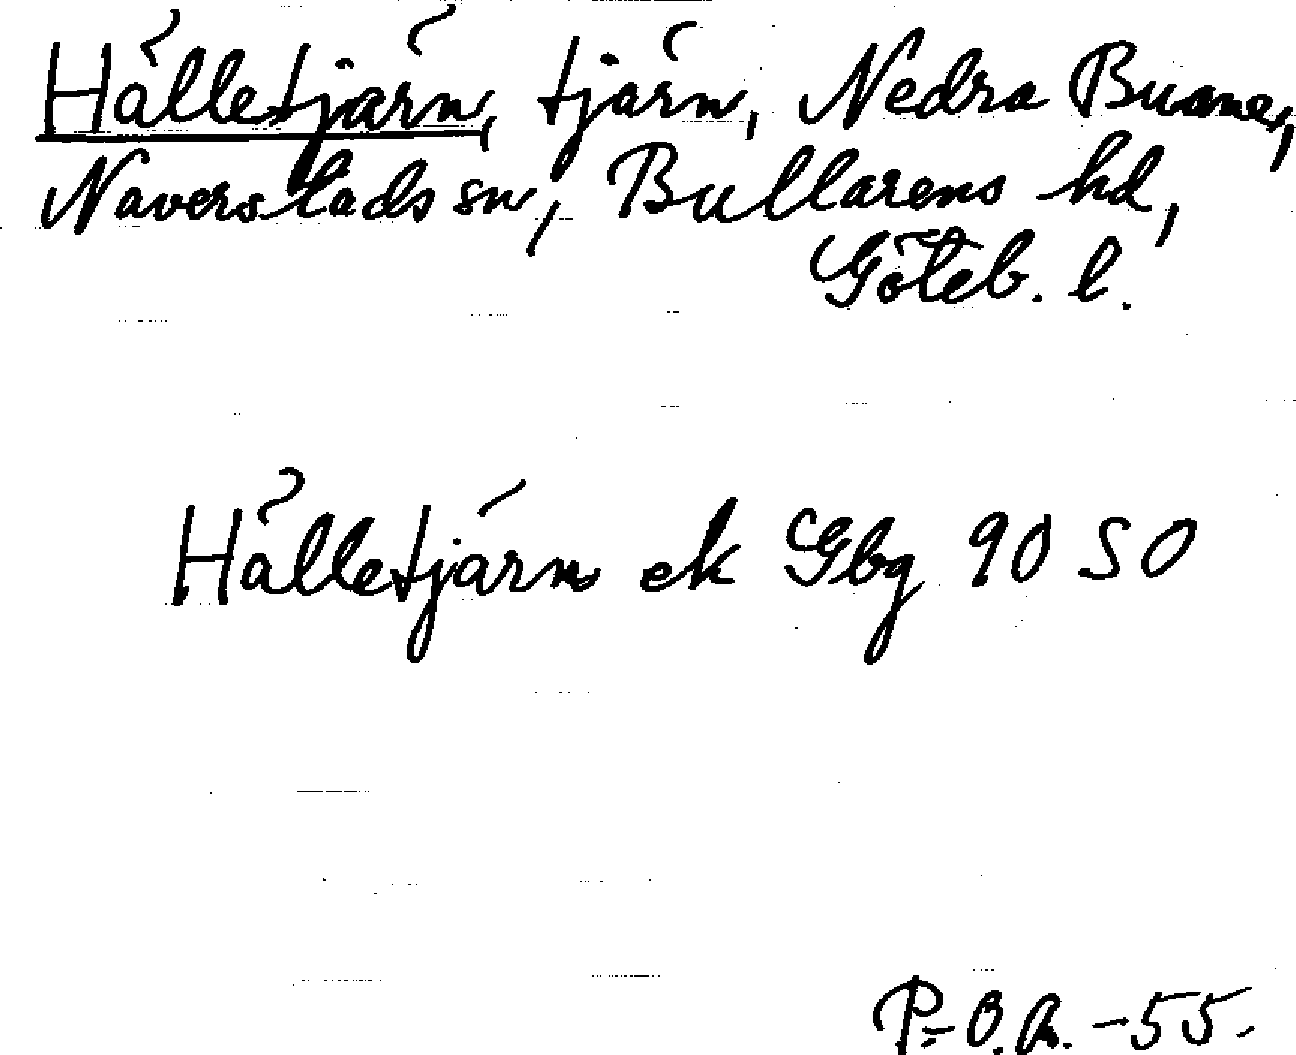 Hälletjärn, tjärn, Nedra Buane,
Naverstads sn, Bullarens hd,
Göteb. l.
Hälletjärn ek Gbg 90 SO
P.O.R. -55.